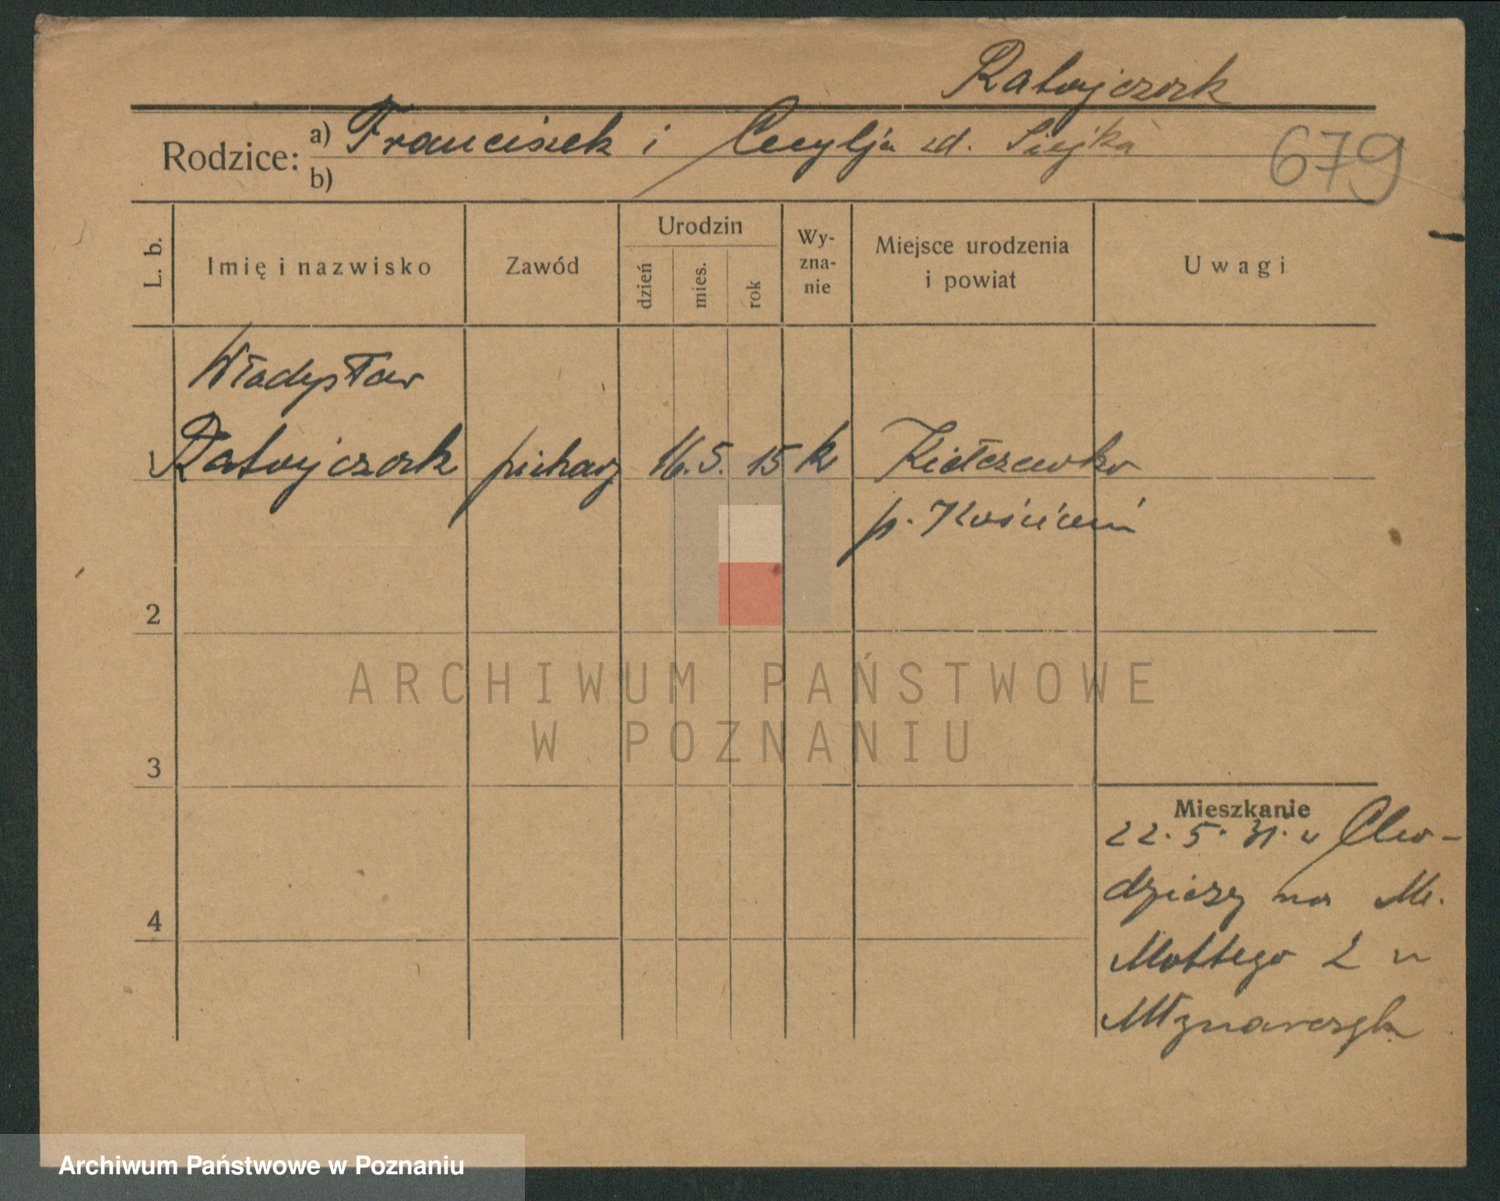 Ratajczak
Rodzice: a) Franciszek i Cecylja zd.
b)
679
L. b.
Imię i nazwisko
Zawód
Urodzin
dzień
mies.
rok
Wy-
zna-
nie
Miejsce urodzenia
i powiat
Uwagi
Władysław
1 Ratajczak piekarz 16. 5. 15 k Kiełczewko
p. Kościan
2
3
4
Mieszkanie
22. 5. 31. z Cho-
dzieży na M.
Mottego 2 u
Młynarczyk
ARCHIWUM PAŃSTWOWE
W POZNANIU
Archiwum Państwowe w Poznaniu